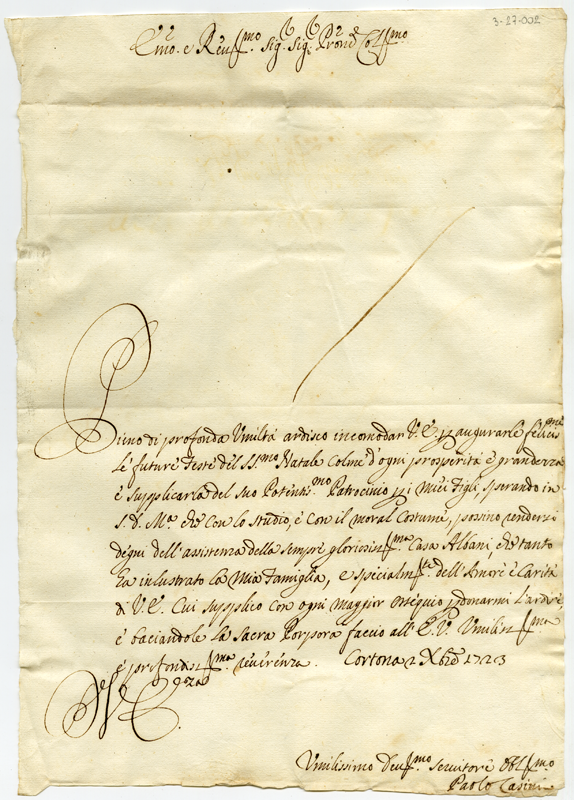 3-27-002
Emo. e Reuſmo Sig. Sig. Prone Colſmo
Pieno di profonda Vmiltà ardisco incomodar V. E. p augurarle feliciſſme
Le future Feste del SS.mo Natale Colme d'ogni prosperità è grandezza
è Supplicarla del Suo Potentis.mo Patrocinio p i Miei Figli, sperando in
S. D. Ma. che Con lo Studio, è Con il moral Costume, possino rendersi
dègni dell'assistenza della Sempre gloriosisſma Casa Albani, che tanto
ha inlustrato la Mia Famiglia, e specialmte dell'Amore è Carità
di V. E. Cui supplico con ogni maggior Ossequio pdonarmi l'ardire,
è baciandole La Sacra Porpora faccio all' E. V. Vmilisſma
è profondisſma reuerenza. Cortona 2 Xbre 1723
Vmilissimo Deuſmo Seruitore Oblſmo
Paolo Casini